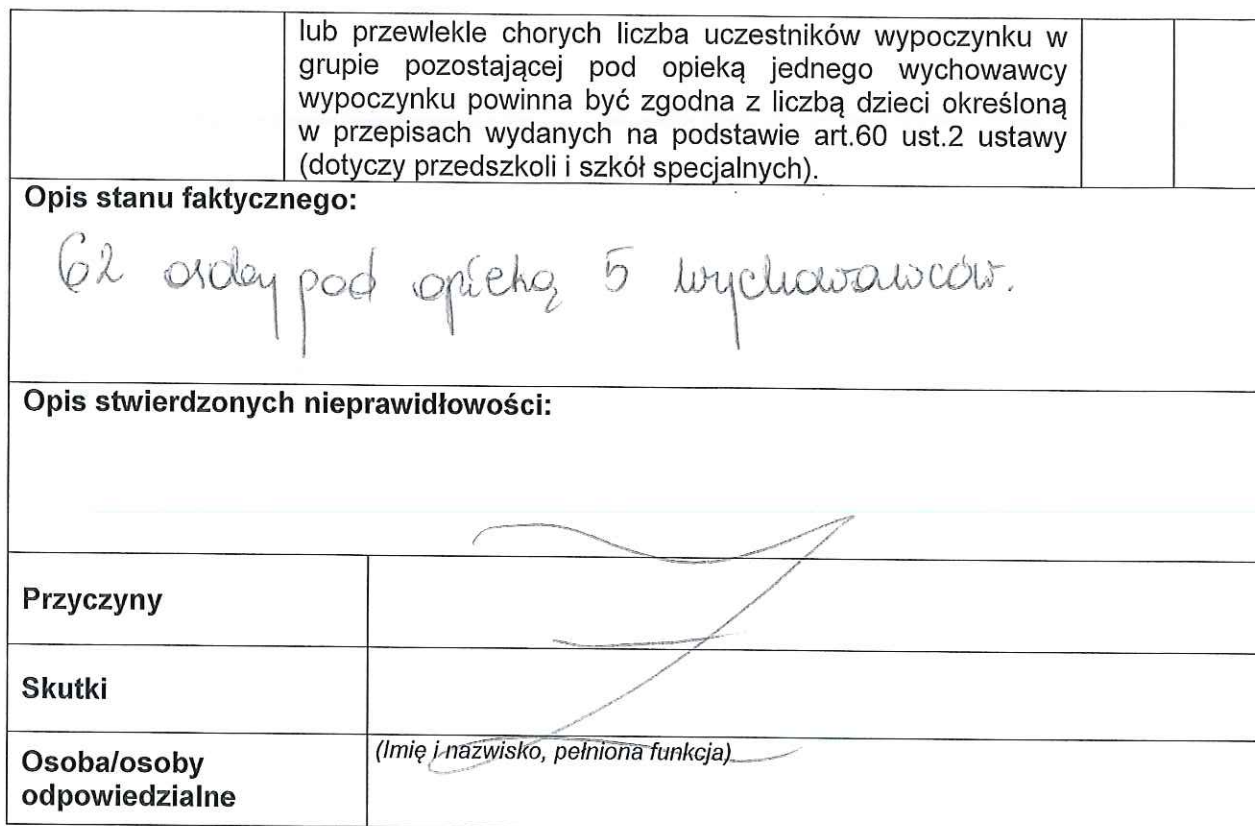 lub przewlekle chorych liczba uczestników wypoczynku w
grupie pozostającej pod opieką jednego wychowawcy
wypoczynku powinna być zgodna z liczbą dzieci określoną
w przepisach wydanych na podstawie art.60 ust.2 ustawy
(dotyczy przedszkoli i szkół specjalnych).
Opis stanu faktycznego:
62 osoby pod opieką 5 wychowawców.
Opis stwierdzonych nieprawidłowości:
Przyczyny
Skutki
Osoba/osoby
odpowiedzialne
(Imię i nazwisko, pełniona funkcja)